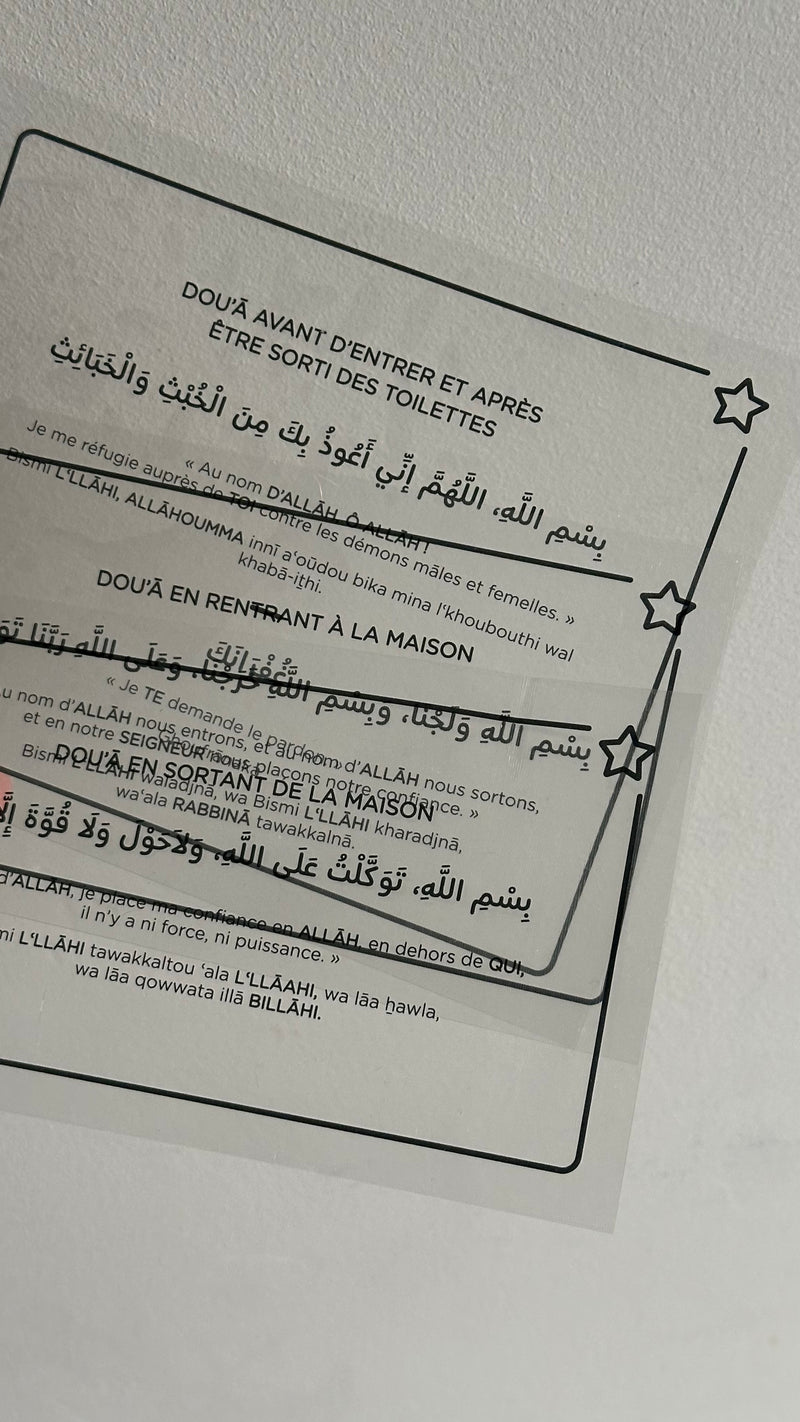 DOU'Ā AVANT D'ENTRER ET APRÈS
ÊTRE SORTI DES TOILETTES
بِسْمِ اللَّهِ، اللَّهُمَّ إِنِّي أَعُوذُ بِكَ مِنَ الْخُبْثِ وَالْخَبَائِثِ
« Au nom D'ALLĀH, Ô ALLĀH !
Je me réfugie auprès de TOI contre les démons mâles et femelles. »
Bismi L'LLĀHI, ALLĀHOUMMA innī a'oūdou bika mina l'khoubouthi wal
khabā-iṯhi.
غُفْرَانَكَ
« Je TE demande le pardon. »
Ghoufrānaka
DOU'Ā EN RENTRANT À LA MAISON
بِسْمِ اللَّهِ وَلَجْنَا، وَبِسْمِ اللَّهِ خَرَجْنَا، وَعَلَى اللَّهِ رَبِّنَا
u nom d'ALLĀH nous entrons, et au nom d'ALLĀH nous sortons,
et en notre SEIGNEUR nous plaçons notre confiance. »
Bismi L'LLĀHI waladjnā, wa Bismi L'LLĀHI kharadjnā,
wa'ala RABBINĀ tawakkalnā.
DOU'Ā EN SORTANT DE LA MAISON
بِسْمِ اللَّهِ، تَوَكَّلْتُ عَلَى اللَّهِ، وَلَاحَوْلَ وَلَا قُوَّةَ إِلَّا
d'ALLĀH, je place ma confiance en ALLĀH, en dehors de QUI,
il n'y a ni force, ni puissance. »
mi L'LLĀHI tawakkaltou 'ala L'LLĀAHI, wa lāa ẖawla,
wa lāa qowwata illā BILLĀHI.